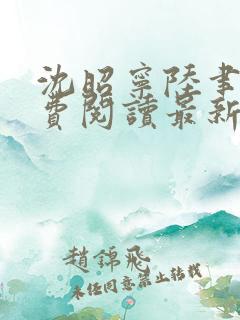 沈昭寧陸書
費閱讀最新
趙錦飛
未經同意禁止轉載